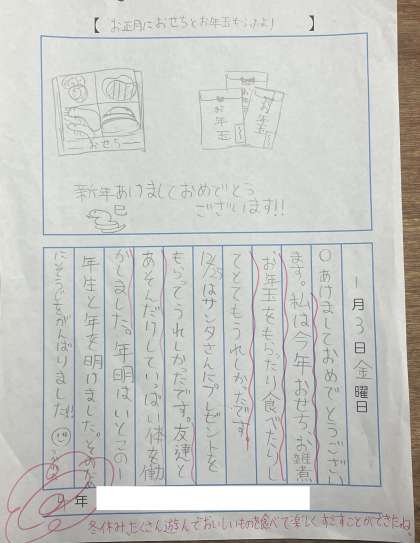 【お正月におせちとお年玉もらったよ!】
おせち
お年玉
お年玉
新年あけましておめでとう
ございます!!
巳
1月3日金曜日
○あけましておめでとうござい
ます。私は今年おせち、お雑煮
お年玉をもらったり食べたりし
てとてもうれしかたです。
12/25はサンタさんにプレゼントを
もらってうれしかったです。友達と
あそんだけしていっぱい体を働
がしました。年明はいとこの一
年生と年を明けました。そのため
にそうじをがんばりました!!
年
冬休み、たくさん遊んでおいしいものを食べて楽しくすごすことができたね